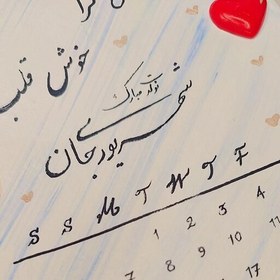 خوش قلب
تولدت مبارک
شهریور جان
S S M T W T F
1 2 3 4
7 8 9 10 11
17